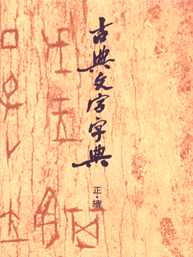 古典文字字典
正·續